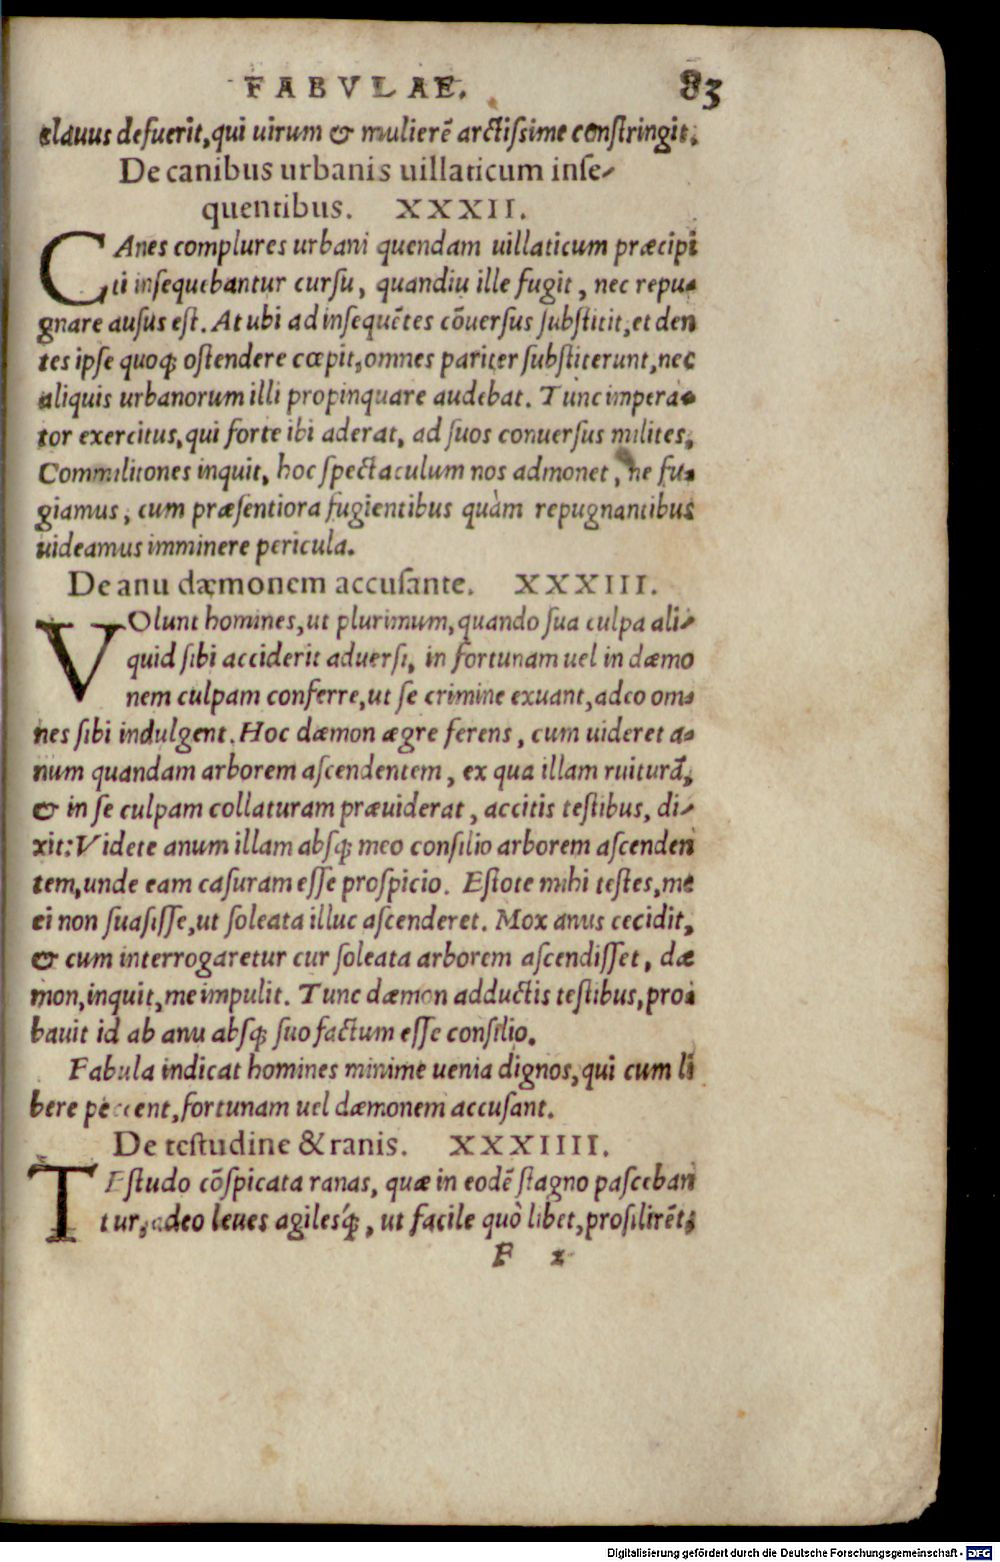 FABVLAE. 83
clauus defuerit, qui uirum & mulierē arctissime constringit.
De canibus urbanis uillaticum inse-
quentibus. XXXII.
CAnes complures urbani quendam uillaticum præcipi
ti insequebantur cursu, quandiu ille fugit, nec repu-
gnare ausus est. At ubi ad insequētes cōuersus substitit, et den
tes ipse quoq; ostendere cœpit, omnes pariter substiterunt, nec
aliquis urbanorum illi propinquare audebat. Tunc impera-
tor exercitus, qui forte ibi aderat, ad suos conuersus milites,
Commilitones inquit, hoc spectaculum nos admonet, ne fu-
giamus, cum præsentiora fugientibus quàm repugnantibus
uideamus imminere pericula.
De anu dæmonem accusante. XXXIII.
VOlunt homines, ut plurimum, quando sua culpa ali-
quid sibi acciderit aduersi, in fortunam uel in dæmo
nem culpam conferre, ut se crimine exuant, adeo om-
nes sibi indulgent. Hoc dæmon ægre ferens, cum uideret a-
num quandam arborem ascendentem, ex qua illam ruiturā,
& in se culpam collaturam præuiderat, accitis testibus, di-
xit: Videte anum illam absq; meo consilio arborem ascenden
tem, unde eam casuram esse prospicio. Estote mihi testes, me
ei non suasisse, ut soleata illuc ascenderet. Mox anus cecidit,
& cum interrogaretur cur soleata arborem ascendisset, dæ
mon, inquit, me impulit. Tunc dæmon adductis testibus, pro-
bauit id ab anu absq; suo factum esse consilio.
Fabula indicat homines minime uenia dignos, qui cum li
bere peccent, fortunam uel dæmonem accusant.
De testudine & ranis. XXXIIII.
TEstudo cōspicata ranas, quæ in eodē stagno pasceban
tur, adeo leues agilesq́;, ut facile quò libet, prosilirēt,
F 2
Digitalisierung gefördert durch die Deutsche Forschungsgemeinschaft - DFG